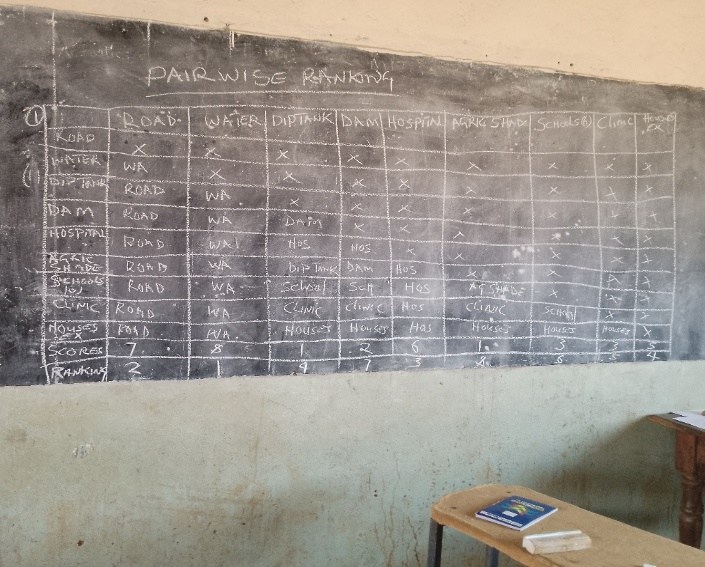 PAIRWISE RANKING
① ROAD WATER DIPTANK DAM HOSPITAL AGRIC SHADE SCHOOLS(S) CLINIC HOUSES EX
ROAD X X X X X X X X X
WATER WA X X X X X X X X
DIPTANK ROAD WA X X X X X X X
DAM ROAD WA DAM X X X X X X
HOSPITAL ROAD WA HOS HOS X X X X X
AGRIC SHADE ROAD WA DIPTANK DAM HOS X X X X
SCHOOLS ROAD WA SCHOOL SCH HOS SHADE X X X
CLINIC ROAD WA CLINIC CLINIC HOS CLINIC SCHOOL X X
HOUSES EX ROAD WA HOUSES HOUSES HOS HOUSES HOUSES HOUSES X
SCORES 7 8 1 2 6 1 3 3 5
RANKING 2 1 7 3 8 4